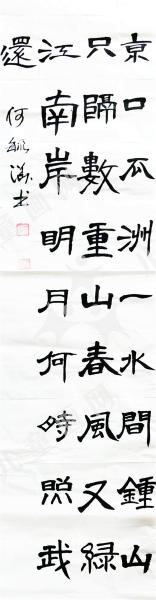 京口瓜洲一水間鍾山
只隔數重山春風又綠
江南岸明月何時照我
還
何